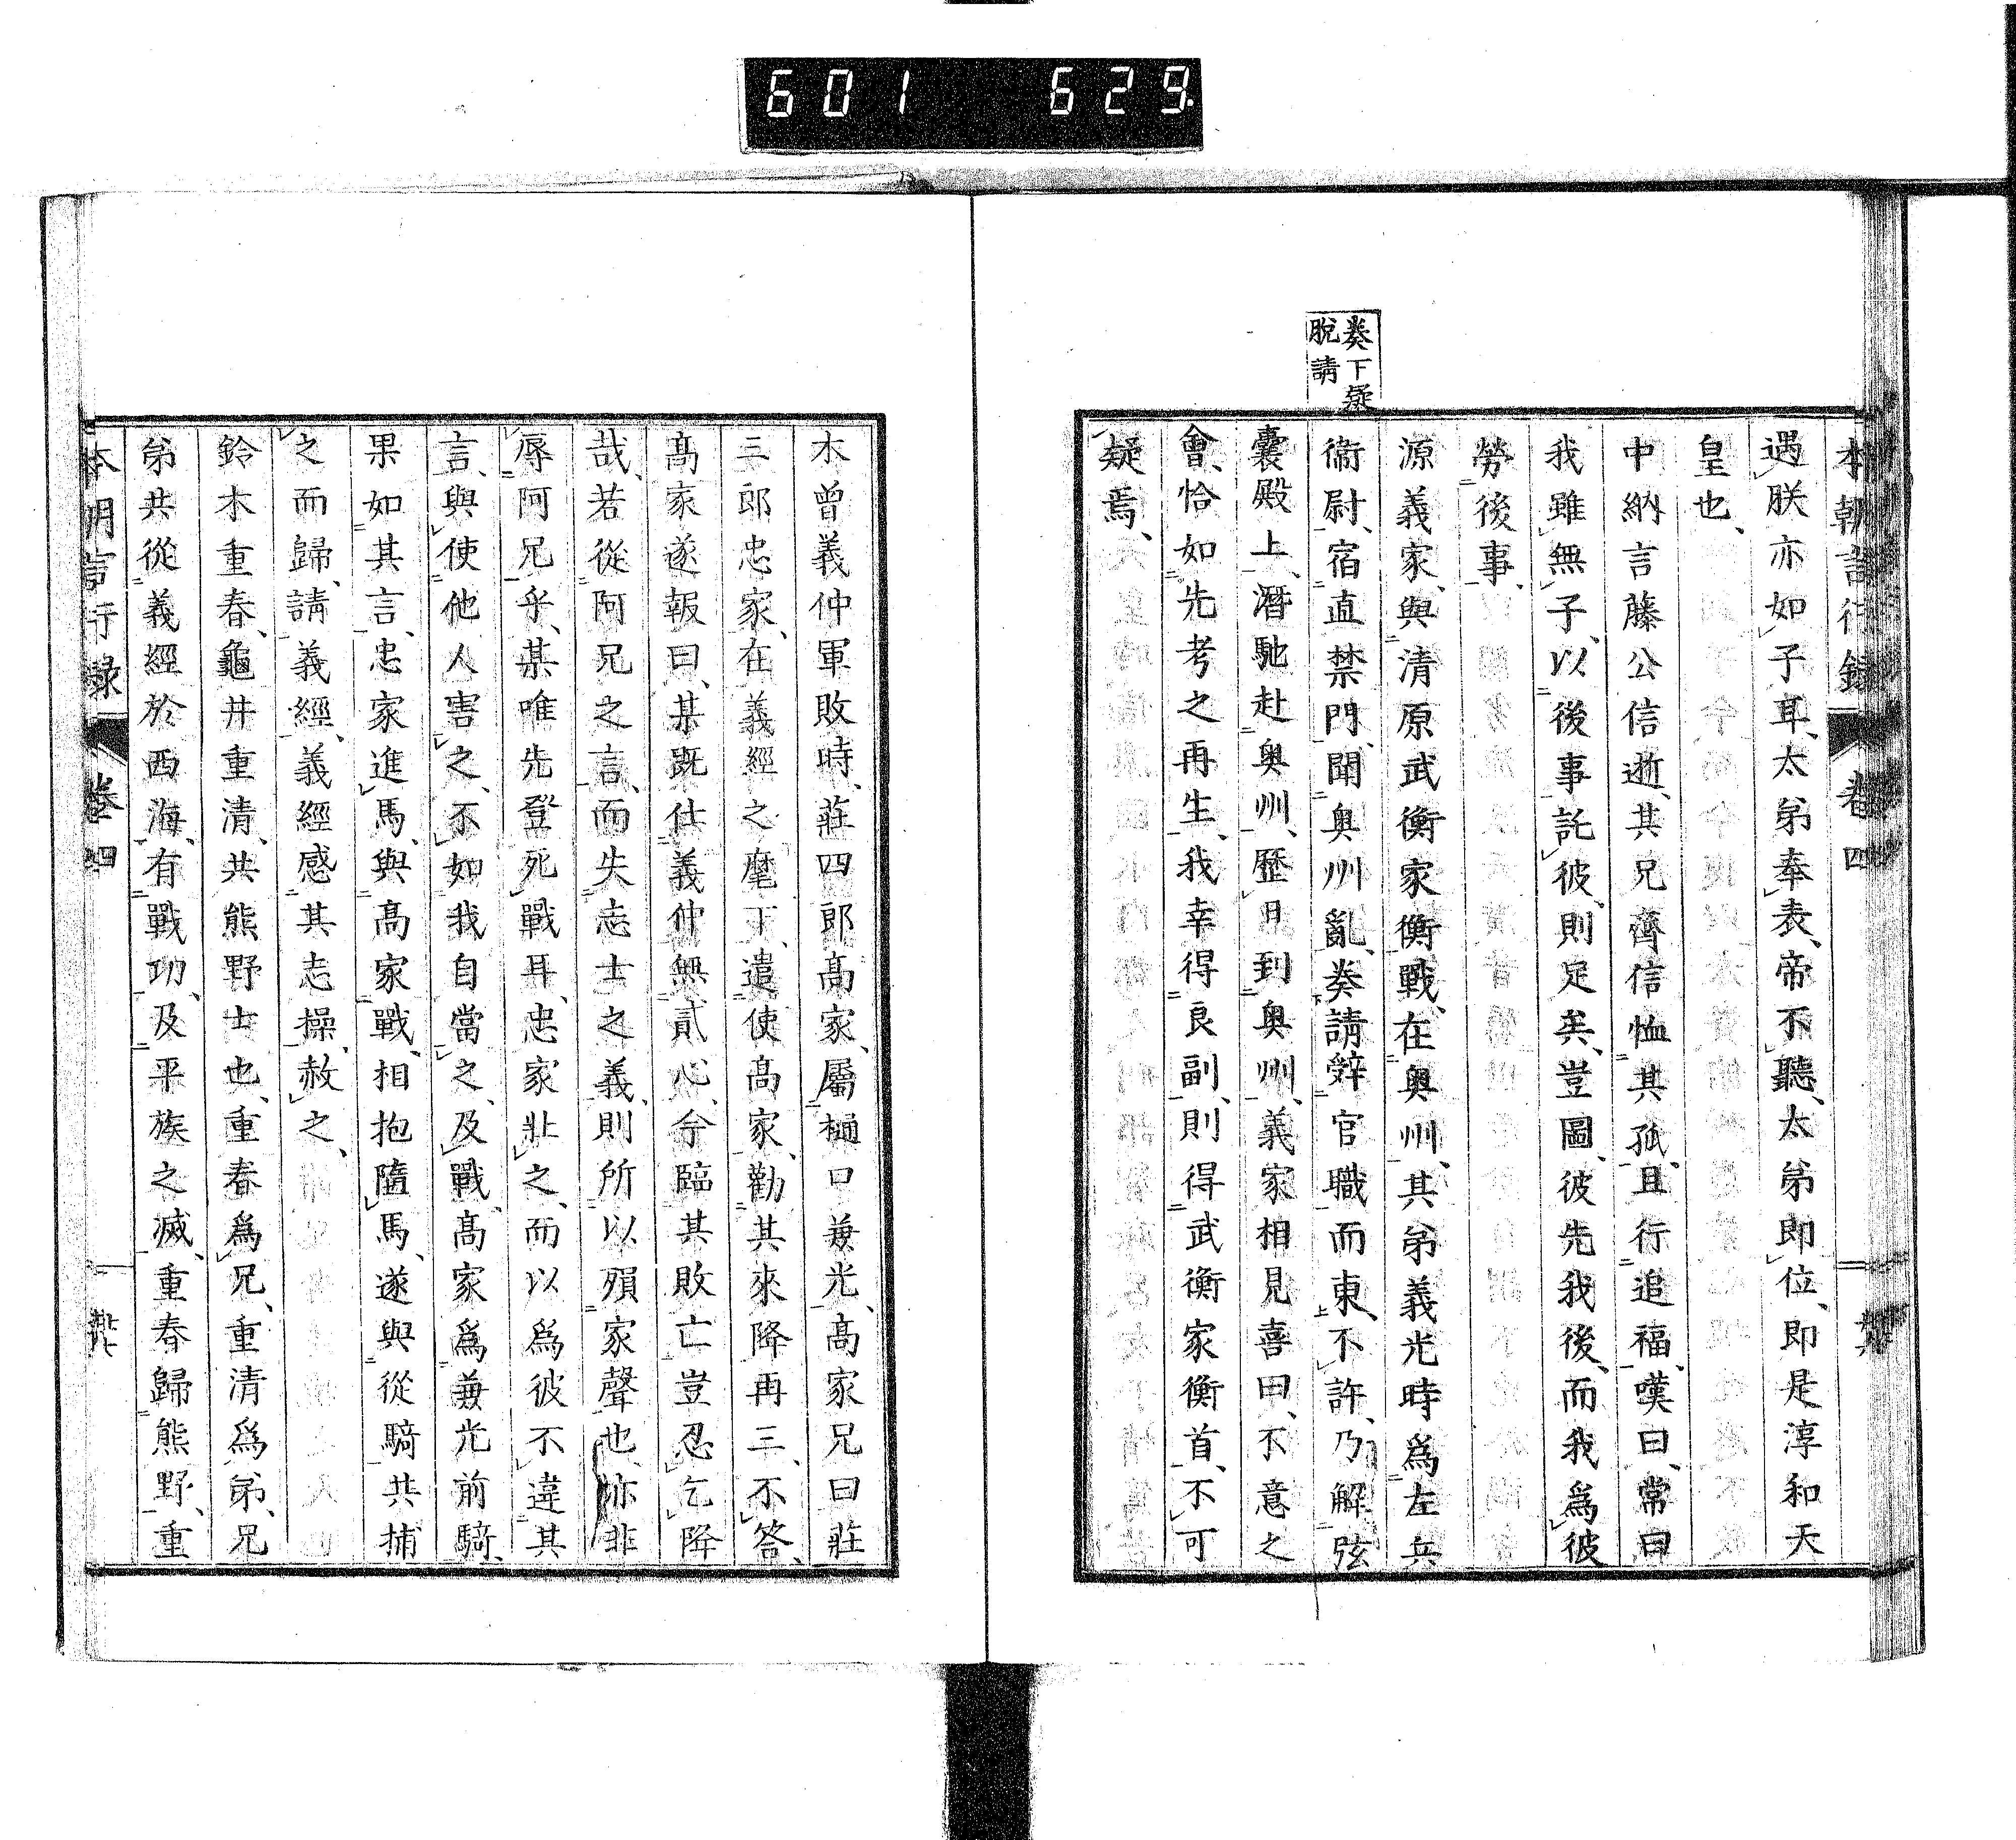 601 629
本朝言行録 卷四
遇朕亦如子耳、太弟奉表、帝不聽、太弟即位、即是淳和天
皇也、
中納言藤公信逝、其兄齊信恤其孤、且行追福、嘆曰、常曰
我雖無子、以後事託彼、則足矣、豈圖、彼先我後、而我爲彼
勞後事、
源義家、與清原武衡家衡戰、在奥州、其弟義光時爲左兵
衞尉、宿直禁門、聞奥州亂、奏請辭官職而東、不許、乃解弦
囊殿上、潛馳赴奥州、歷日到奥州、義家相見喜曰、不意之
會、恰如先考之再生、我幸得良副、則得武衡家衡首、不可
疑焉、
奏下疑
脱請
木曾義仲軍敗時、莊四郎高家、屬樋口兼光、高家兄曰莊
三郎忠家、在義經之麾下、遣使高家、勸其來降再三、不答、
高家遂報曰、某既仕義仲無貳心、今臨其敗亡豈忍乞降
哉、若從阿兄之言、而失志士之義、則所以殞家聲也、亦非
辱阿兄乎、某唯先登死戰耳、忠家壯之、而以爲彼不違其
言、與使他人害之、不如我自當之、及戰、高家爲兼光前騎、
果如其言、忠家進馬、與高家戰、相抱隨馬、遂與從騎共捕
之而歸、請義經、義經感其志操、赦之、
鈴木重春、龜井重清、共熊野士也、重春爲兄、重清爲弟、兄
弟共從義經於西海、有戰功、及平族之滅、重春歸熊野、重
本朝言行録 卷四